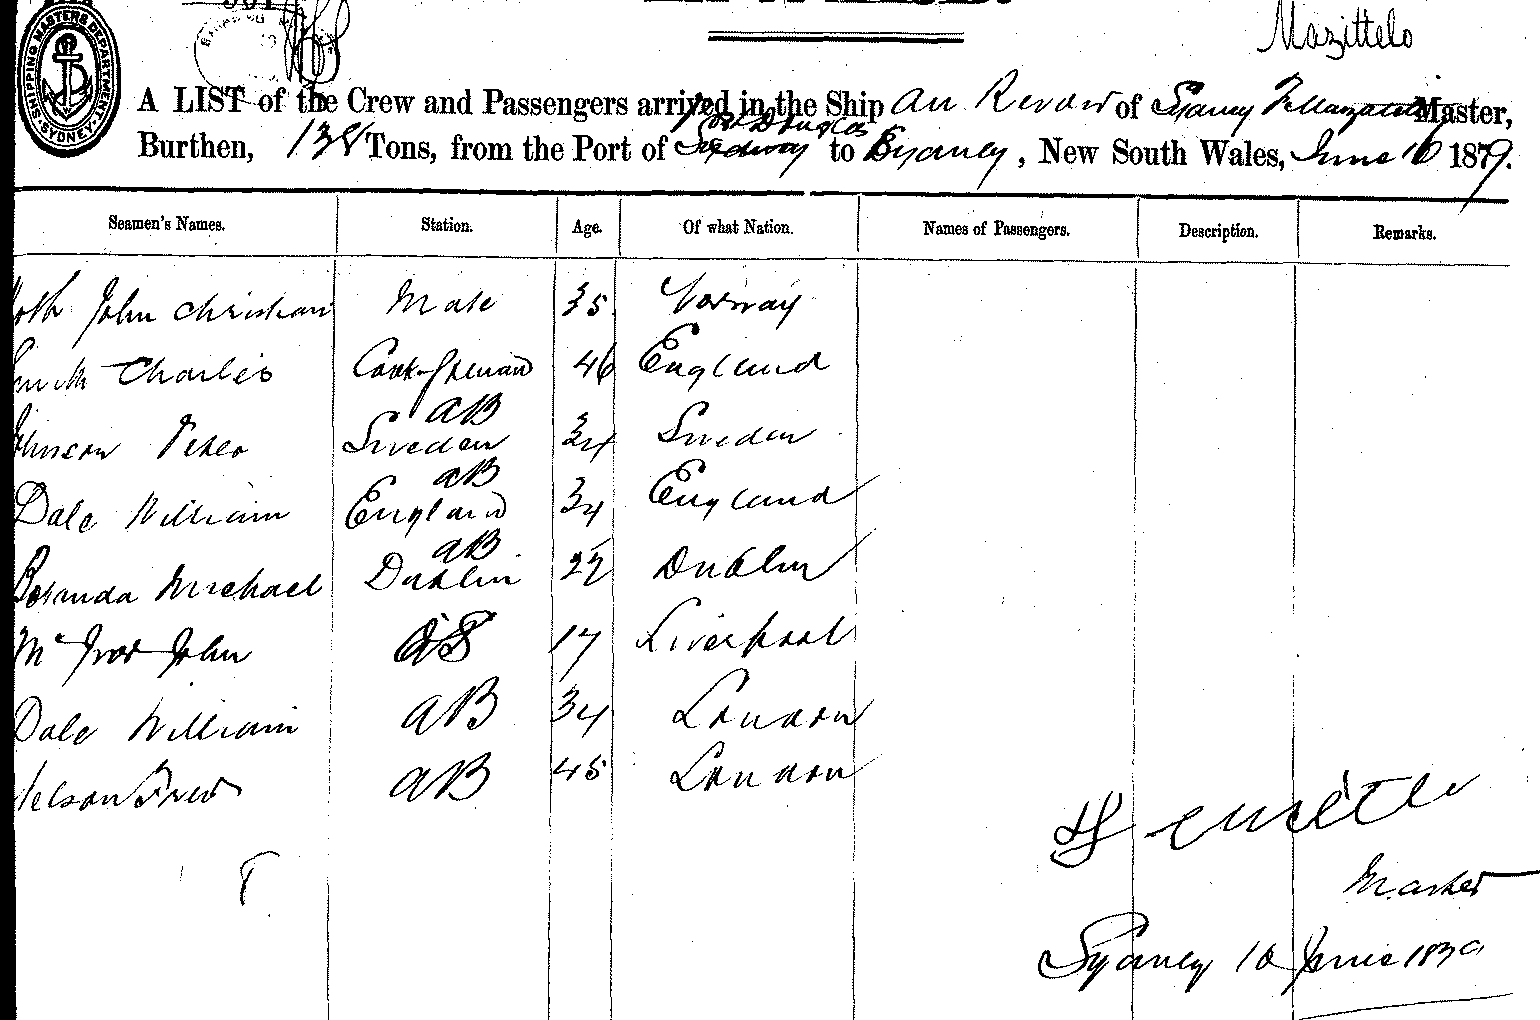 Mazittelo
SHIPPING MASTERS DEPARTMENT SYDNEY
A LIST of the Crew and Passengers arrived in the Ship Au Revoir of Sydney Master,
Port Douglas
Burthen, 138 Tons, from the Port of to Sydney, New South Wales, June 16 1879.
Seamen's Names. Station. Age. Of what Nation. Names of Passengers. Description. Remarks.
John Christian Mate 35 Norway
Charles Cook & Steward 46 England
AB
Johnson Peter Sweden 34 Sweden
AB
Dale William England 34 England
AB
Michael Dublin 22 Dublin
John OS 17 Liverpool
Dale William AB 34 London
Nelson Fred AB 45 London
Master
Sydney 16 June 1879